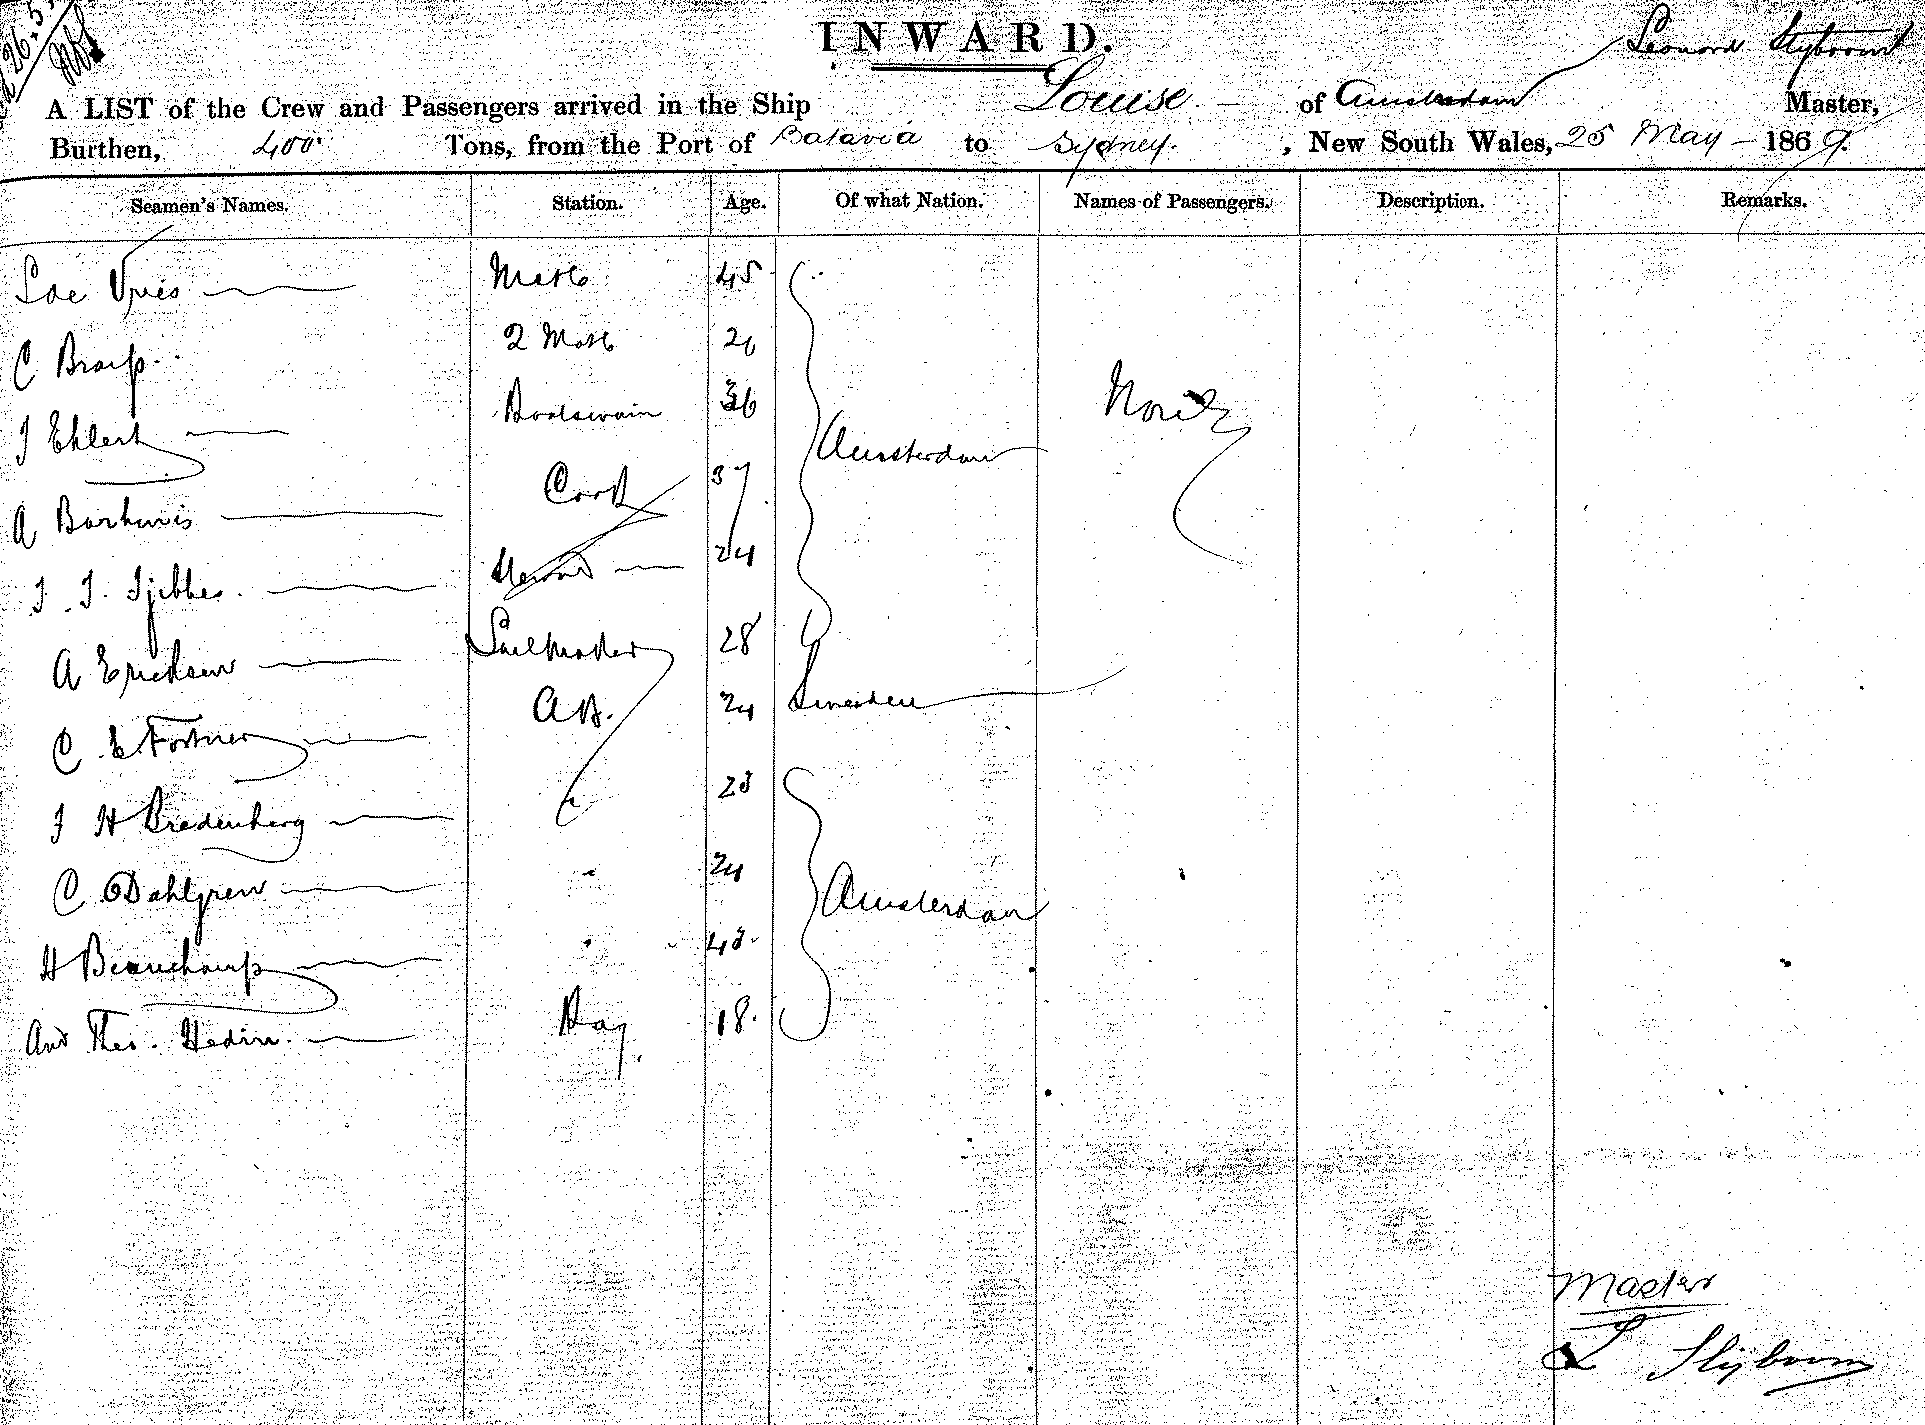 26.5
INWARD.
Leonard Slijboom
A LIST of the Crew and Passengers arrived in the Ship Louise of Amsterdam Master,
Burthen, 400 Tons, from the Port of Batavia to Sydney. , New South Wales, 25 May - 1869.
Seamen's Names. Station. Age. Of what Nation. Names of Passengers. Description. Remarks.
Vries Mate 45
C 2 Mate
J Ehlert Boatswain 36 Nonil
Amsterdam
A Barhuis Cook 37
J. J. Tjebbes 24
A Ericksen Sailmaker 28
C. E Fortner AB. 24 Sweeden
J H Bredenberg " 23
C Dahlgren " 24 Amsterdam
H Beauchamp " 43
And Theo. Hedin Boy. 18.
Master
L Slijboom